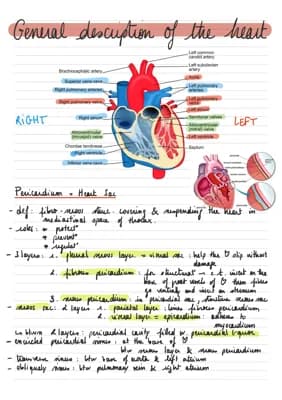 General description of the heart
Left common
carotid artery
Left subclavian
artery
Brachiocephalic artery
Aorta
Superior vena cava
Left pulmonary
arteries
Right pulmonary arteries
Left pulmonary
veins
Right pulmonary veins
Left atrium
Semilunar valves
RIGHT
Right atrium
Atrioventricular
(mitral) valve
LEFT
Atrioventricular
(tricuspid) valve
Left ventricle
Chordae tendineae
Septum
Right ventricle
Inferior vena cava
Pericardium = Heart Sac
- def: fibro-serous struct. covering & suspending the heart in
mediastinal space of thorax.
- roles: * protect
* prevent
* regulate
- 3 layers: 1. pleural serous layer = visceral sac: help the slip without
damage
2. fibrous pericardium: for structural c.t. insert on the
base of great vessels of then fibres
go ventrally and insert on sternum
3. serous pericardium: in pericardial sac, structure serous sac
serous sac: 2 layers 1. parietal layer: lines fibrous pericardium
2. visceral layer = epicardium: adheres to
myocardium
between 2 layers: pericardial cavity filled w. pericardial liquor
- encircled pericardial sinus: at the base of
btw serous layer & serous pericardium
- transverse sinus: btw base of aorta & left atrium
- obliquely sinus: btw pulmonary vein & right atrium